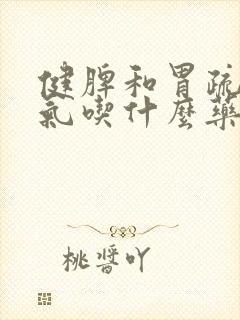 健脾和胃疏
氣喫什麽藥
桃醬吖